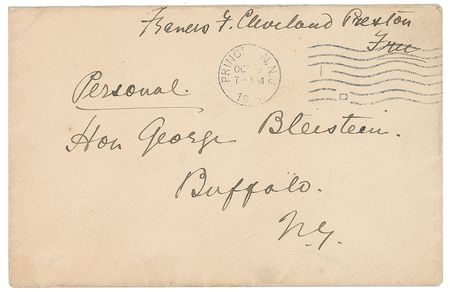 Frances F. Cleveland Preston
Free
PRINCETON, N.J.
OCT
Personal.
Hon George Bleistein.
Buffalo.
N.Y.